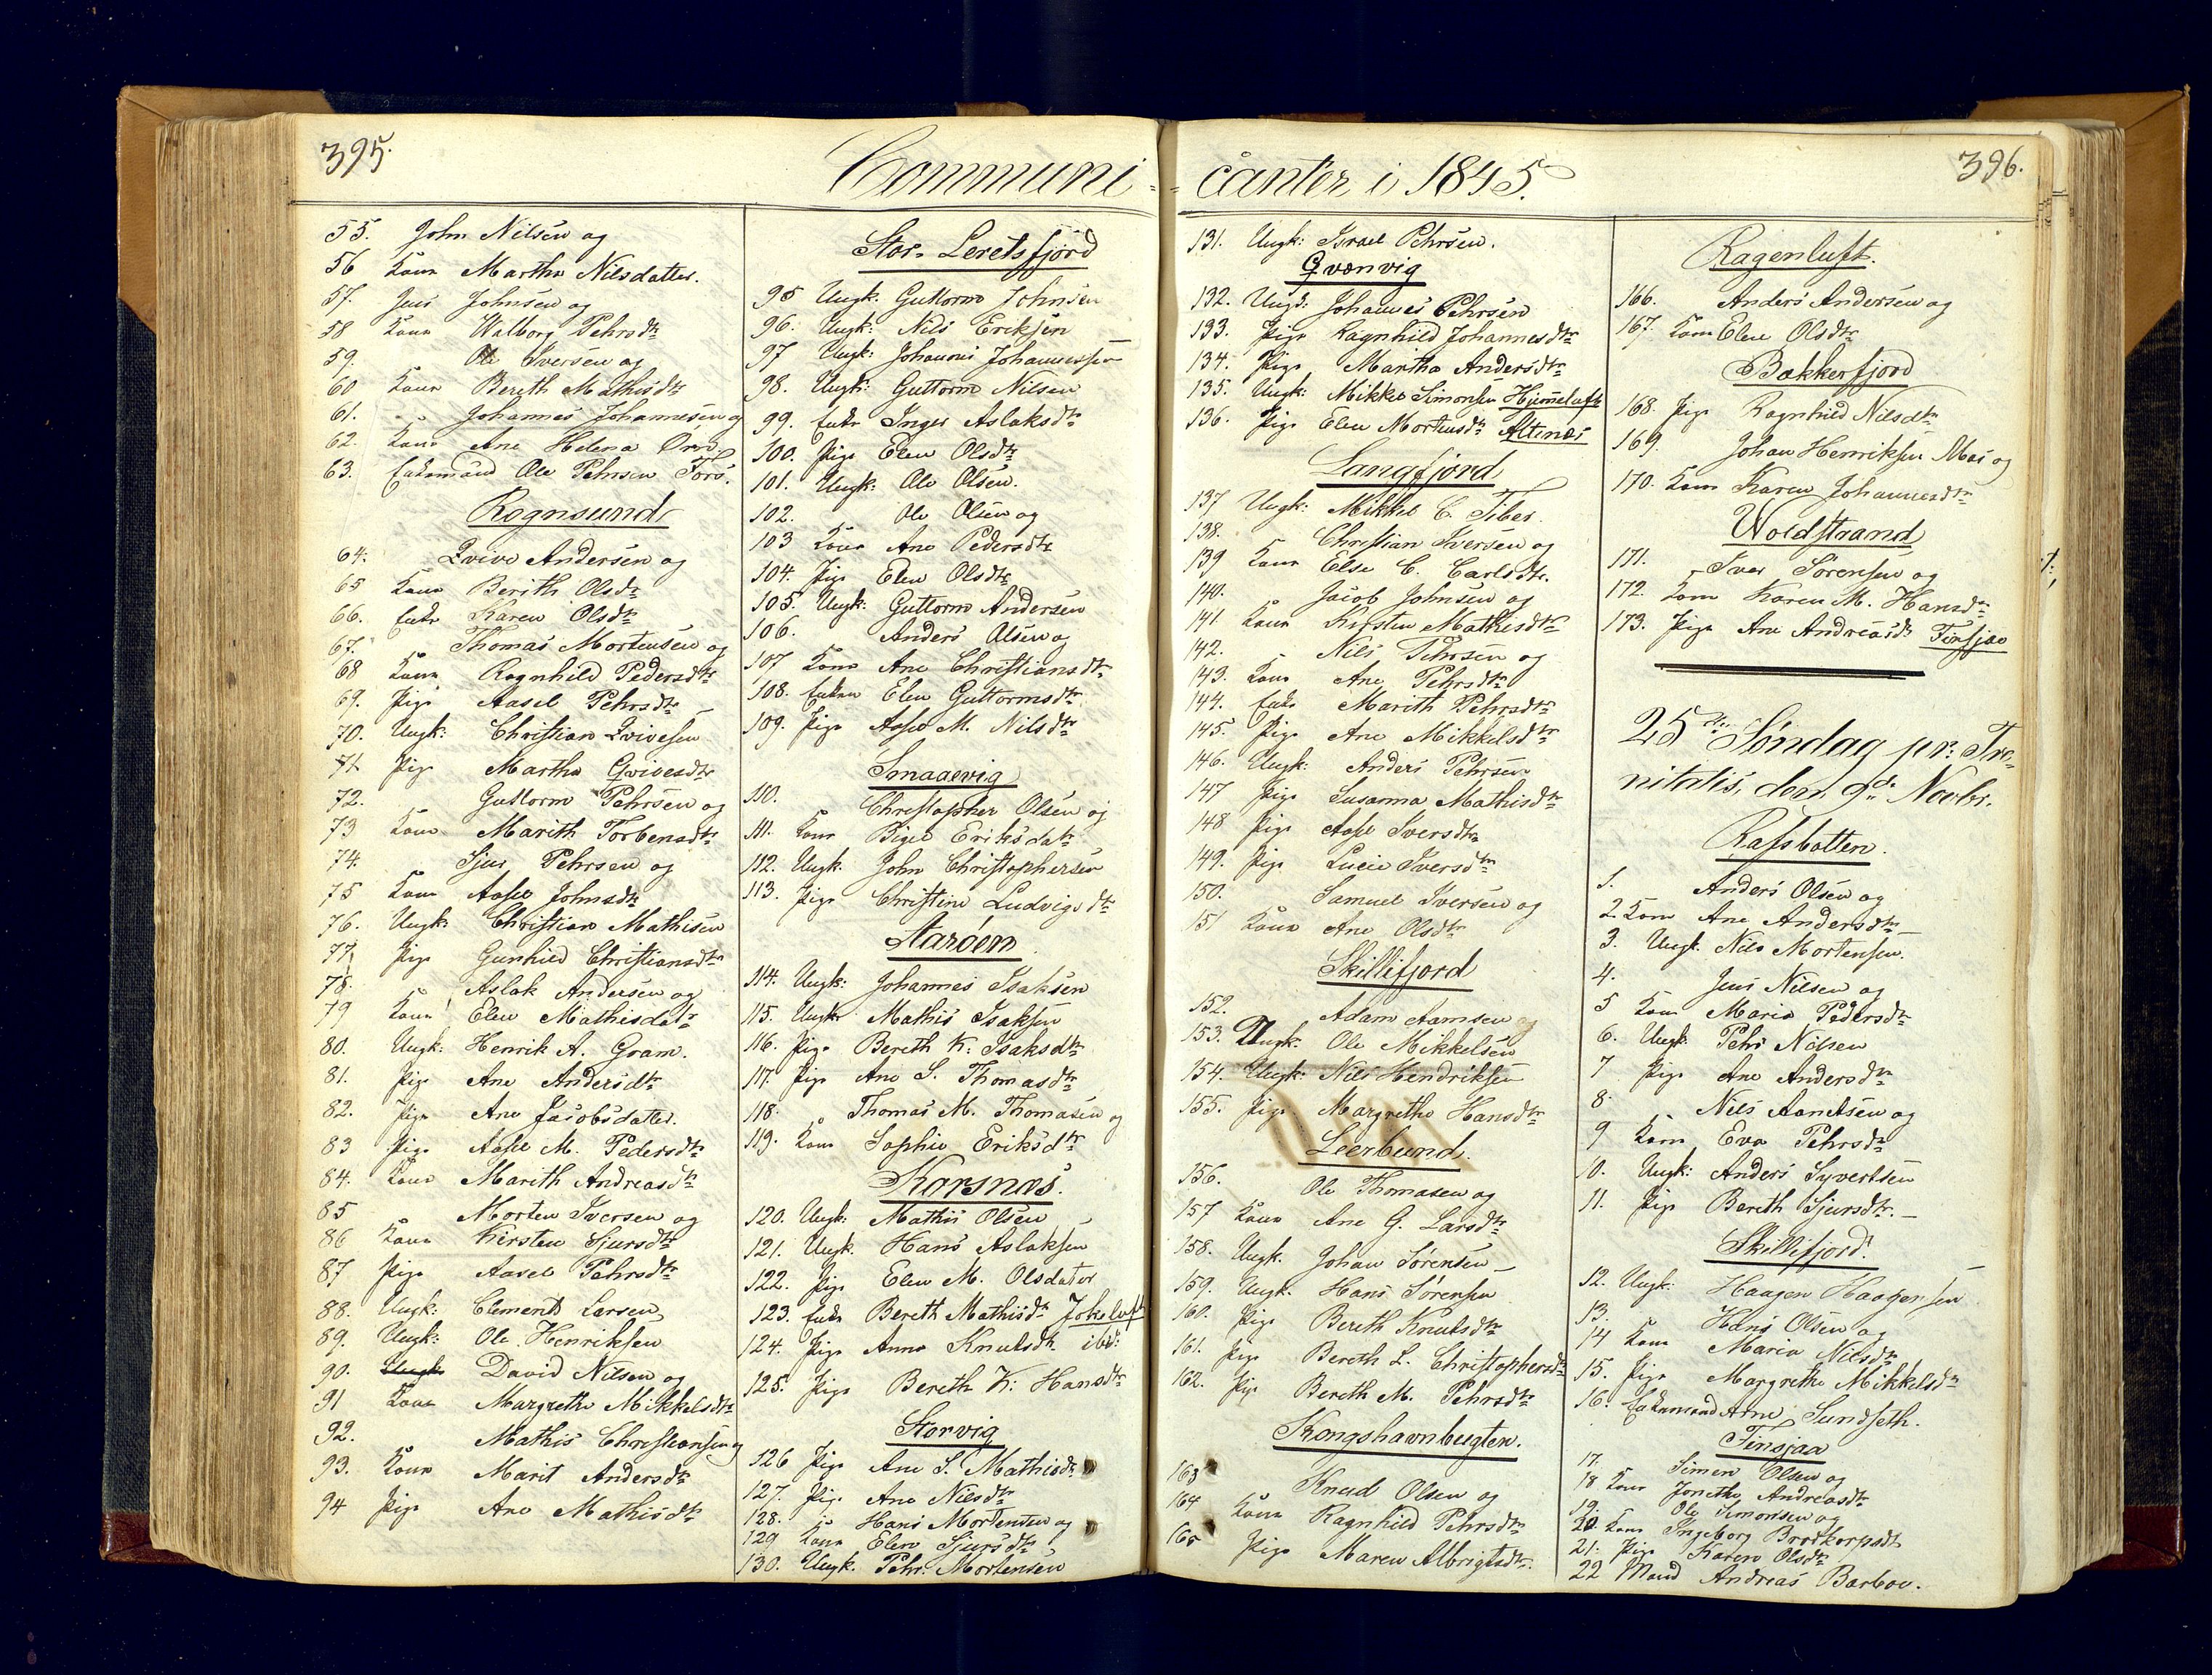 395.
Communi-
55. John Nilsen og
56 Kone Martha Nilsdatter.
57. Jens Johnsen og
58 Kone Walborg Pehrsdtr
59. Ole Iversen og
60 Kone Bereth Mathisdtr
61. Johannes Johannesen og
62. Kone Ane Helena
63. Enkemand Ole Pehrsen
Rognsund
64. Qvive Andersen og
65 Kone Berith Olsdr
66. Enke Karen Olsdtr
67. Thomas Mortensen og
68 Kone Ragnhild Pedersdtr
69. Pige Aasel Pehrsdtr
70. Ungk: Christian Qvivesen
71 Pige Martha Qvivesdtr
72. Guttorm Pehrsen og
73 Kone Marith Torbensdtr
74. Sjur Pehrsen og
75 Kone Aase Johnsdtr
76. Ungk: Christian Mathisen
77. Pige Gunhild Christiansdtr
78. Aslak Andersen og
79 Kone Elen Mathisdatr
80. Ungk: Henrik A. Gram.
81. Pige Ane Andersdtr
82. Pige Ane Jacobsdatter.
83 Pige Aase M. Pedersdtr
84. Kone Marith Andreasdtr
85 Morten Iversen og
86 Kone Kirsten Sjursdtr
87 Pige Aasel Pehrsdtr
88. Ungk: Clement Larsen
89. Ungk: Ole Henriksen
90. Ungk: David Nilsen og
91 Kone Margrethe Mikkelsdtr
92. Mathis Christiansen og
93. Kone Marit Andersdtr
94 Pige Ane Mathisdtr
Stor-Leretsfjord
95 Ungk. Guttorm Johnsen
96. Ungk: Nils Eriksen
97 Ungk: Johannes Johannessen
98. Ungk: Guttorm Nilsen
99. Enke Inger Aslaksdtr
100. Pige Elen Olsdtr
101. Ungk: Ole Olsen.
102. Ole Olsen og
103 Kone Ane Pedersdtr
104. Pige Elen Olsdtr
105. Ungk: Guttorm Andersen
106. Anders Olsen og
107 Kone Ane Christiansdtr
108. Enke Elen Guttormsdtr
109. Pige Aase M. Nilsdtr
Smaavig
110. Christopher Olsen og
111. Kone Eriksdatr
112. Ungk. John Christophersen
113. Pige Christine Ludvigsdtr
Aarøen
114. Ungk: Johannes Isaksen
115. Ungk: Mathis Isaksen
116. Pige Bereth K. Isaksdtr
117. Pige Ane S. Thomasdtr
118. Thomas M. Thomasen og
119. Kone Sophie Eriksdtr
Korsnæs.
120. Ungk: Mathis Olsen
121. Ungk. Hans Aslaksen
122. Pige Elen M. Olsdatter
123. Enke Bereth Mathisdr Jokeluft
124. Pige Anna Knutsdtr ibd:
125. Pige Bereth K: Hansdtr
Storvig
126 Pige Ane S. Mathisdtr
127. Pige Ane Nilsdtr
128. Hans Mortensen og
129 Kone Elen Sjursdtr
130. Ungk. Pehr Mortensen
396.
canter i 1845.
131. Ungk: Israel Pehrsen.
Qvænvig
132. Ungk: Johannes Pehrsen
133. Pige Ragnhild Johannesdtr
134. Pige Martha Andersdtr
135. Ungk: Mikkel Simonsen Hjemeluft
136. Pige Elen Mortensdtr Altenæs
Langfjord
137 Ungk: Mikkel C. Tiber.
138. Christian Iversen og
139 Kone Else C. Carlsdtr.
140. Jacob Johnsen og
141 Kone Kirsten Mathisdtr
142. Nils Pehrsen og
143. Kone Ane Pehrsdtr
144. Enke Marith Pehrsdtr
145. Pige Ane Mikkelsdtr
146. Ungk: Anders Pehrsen
147 Pige Susanna Mathisdtr
148 Pige Aase Iversdtr
149. Pige Lucie Iversdtr
150. Samuel Iversen og
151 Kone Ane Olsdtr
Skillifjord
152. Adam Aamsen og
153. Ungk. Ole Mikkelsen
154. Ungk: Nils Hendriksen
155. Pige Margrethe Hansdtr
Leerbund.
156. Ole Thomasen og
157 Kone Ane G. Larsdtr
158. Ungk. Johan Sørensen
159. Ungk. Hans Sørensen
160. Pige Bereth Knutsdtr
161. Pige Bereth L. Christophersdtr
162. Pige Bereth M. Pehrsdtr
Kongshavnbugten.
163 Knud Olsen og
164 Kone Ragnhild Pehrsdtr
165 Pige Maren Albrigtsdtr.
Ragenluft.
166. Anders Andersen og
167. Kone Elen Olsdtr
Bækkerfjord
168. Pige Ragnhild Nilsdtr
169. Johan Henriksen Mas og
170. Kone Karen Johannesdtr
Woldstrand
171. Iver Sørensen og
172. Kone Karen M. Hansdtr
173. Pige Ane Andreasdtr Tinsjaa
25de Søndag pr: Tri-
nitatis, den 9de Novbr.
Rafsbotten.
1. Anders Olsen og
2 Kone Ane Andersdtr
3. Ungk. Nils Mortensen.
4. Jens Nilsen og
5 Kone Maria Pedersdtr
6. Ungk. Pehr Nilsen
7 Pige Ane Andersdtr
8. Nils Aamtsen og
9 Kone Eva Pehrsdtr
10. Ungk: Anders Syvertsen
11. Pige Bereth Sjursdtr.
Skillifjord.
12. Ungk: Haagen Haagensen
13. Hans Olsen og
14 Kone Maria Nilsdtr
15. Pige Margrethe Mikkelsdtr
16. Enkemand Arne Sundseth.
Tinsjaa
17. Simen Olsen og
18 Kone Jonetha Andreasdtr
19. Ole Simonsen og
20. Kone Ingeborg Brodkorpsdtr
21. Pige Karen Olsdtr
22 Mand Andreas Barbou.